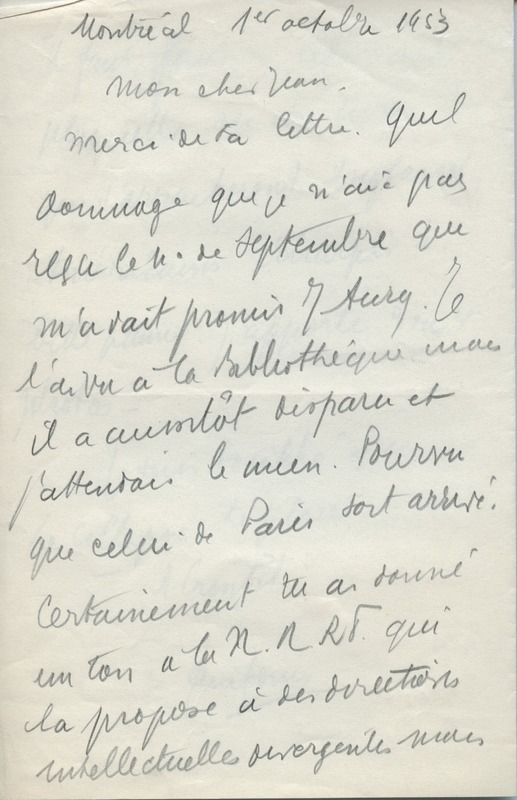 Montréal 1er octobre 1953
Mon cher Jean.
Merci de ta lettre. Quel
dommage que je n'aie pas
reçu le n° de Septembre que
m'avait promis J Aury. Je
l'ai vu à la Bibliothèque mais
il a aussitôt disparu et
j'attendais le mien. Pourvu
que celui de Paris soit arrivé.
Certainement tu as donné
un ton à la N. N R F. qui
la propose à des directions
intellectuelles divergentes mais